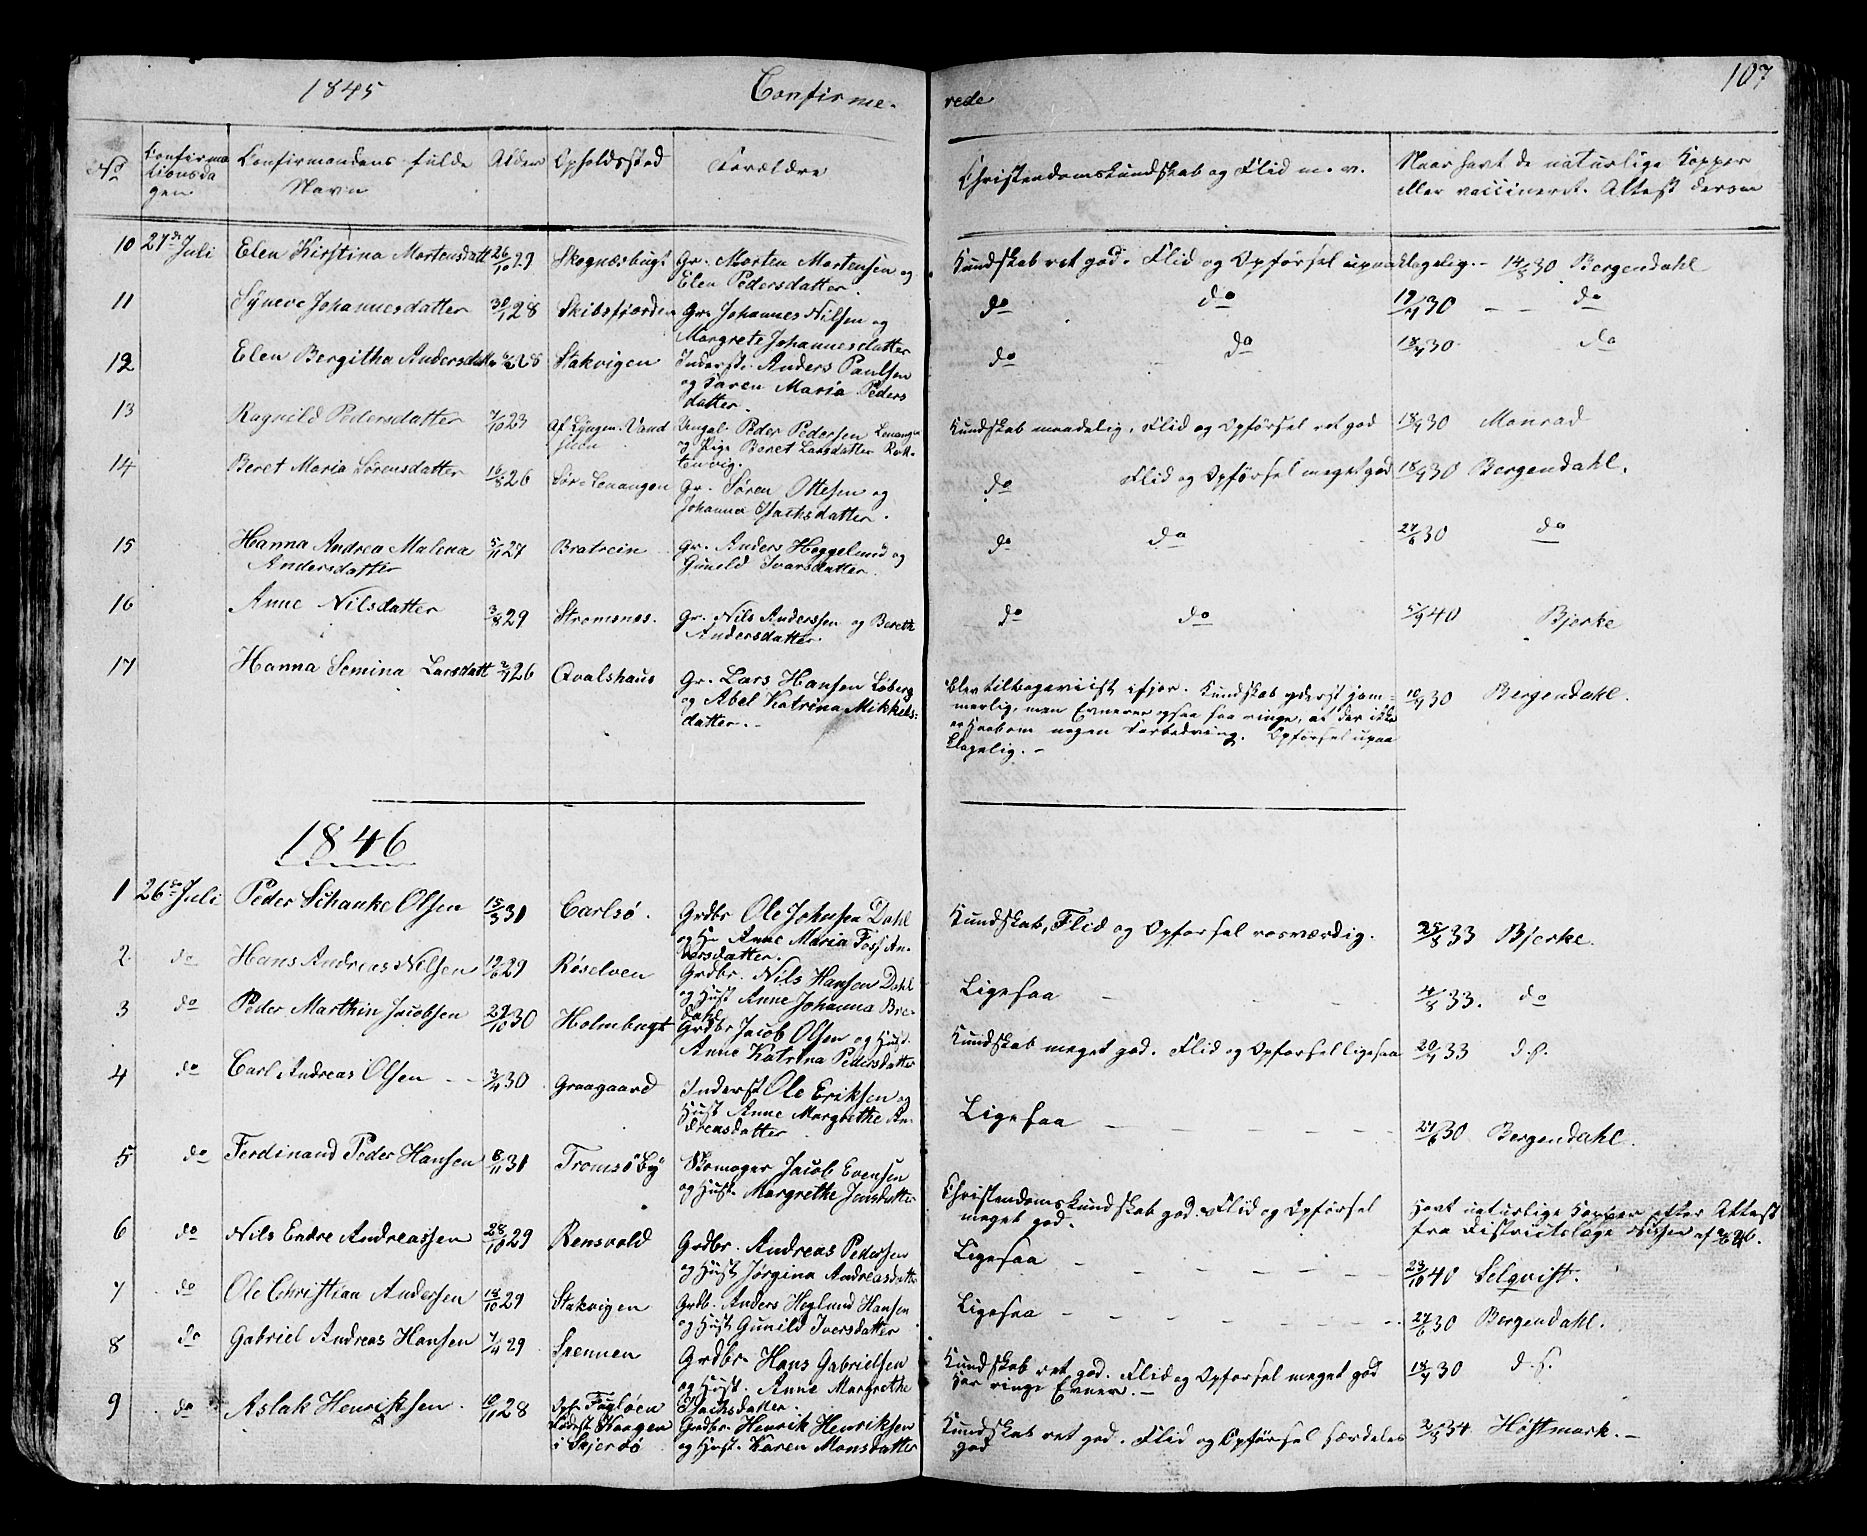 1845 Confirme-
rede 107
No Confirma Confirmandens fulde Alder Opholdssted Forældre
tionsda Navn
gen
Christendomskundskab og Flid m. v. Naar havt de naturlige Kopper
eller vaccineret. Attest derom
10 27de Juli Elen Kirstina Mortensdatt 26/10 29 Skognæsbugt Gr. Morten Mortensen og
Elen Pedersdatter.
Kundskab ret god. Flid og Opførsel upaaklagelig. 30 Bergendahl
11 Syneve Johannesdatter 30/1 28 Skibsfjorden Gr. Johannes Nilsen og
Margrete Johannesdatter
do do 30 do
12 Elen Bergitha Andersdatter 28 Stakvigen Inderst. Anders Paulsen
og Maren Maria Peders
datter.
do do 30 do
13 Ragnild Pedersdatter 7/10 23 af Lyngen. Ungal Peder Pedersen
og Pige Beret Larsdatter
Kundskab maadelig, Flid og Opførsel ret god 30 Monrad
14 Beret Maria Sørensdatter 16/8 26 Søre Lenangen Gr. Søren Ottesen og
Johanna Isachsdatter.
do Flid og Opførsel meget god 30 Bergendahl.
15 Hanna Andrea Malena 5/11 27 Bratrein Gr. Anders Heggelund og
Andersdatter Gunild Ivarsdatter.
do do 27/6 30 do
16 Anne Nilsdatter 3/8 29 Stromsnes. Gr. Nils Anderssen og Berethe
Andersdatter.
do do 40 Bjerke
17 Hanna Semina Larsdatt 26 Qvalshaus Gr. Lars Hansen Loberg
og Abel Katrina Mikkels-
datter.
Blev tilbageviist ifjor. Kundskab yderst jam- 30 Bergendahl.
merlig, men Evnerne ogsaa saa ringe, at der ikke
er Haab om nogen Forbedring. Opførsel upaa
klagelig.
1846
1 26de Juli Peder Schanke Olsen 15/3 31 Carlsö. Grdbr Ole Johnsen Dahl
og H. Anne Maria Foss An-
dersdatter.
Kundskab, Flid og Opførsel rosværdig. 25/8 33 Bjerke.
2 do Hans Andreas Nilsen 29 Röselven Grdbr. Nils Hansen Dahl
og Hust Anne Johanna Bre-
dahl
Ligesaa 4/8 33. do
3 do Peder Marthin Jacobsen 29/10 30 Holmbugt Grdbr Jacob Olsen og Hust.
Anne Katrina Pedersdatter
Kundskab meget god. Flid og Opførsel ligesaa 33 d.s.
4 do Carl Andreas Olsen 3/4 30 Graagaard Inderst Ole Eriksen og
Hust Anne Margrethe An-
dreasdatter
Ligesaa 27/6 30 Bergendahl.
5 do Ferdinand Peder Hansen 8/11 31 Tromsö By Skomager Jacob Evensen
og Hust. Margrethe Jensdatter
Christendomskundskab god. Flid og Opførsel Havt naturlige Kopper efter Attest
meget god. fra Districtslæge
6 do Nils Endre Andreassen 28/10 29 Rensvold Grdbr. Andreas Pedersen
og Hust Jørgina Andreasdatter
Ligesaa 23/10 40 Selqvist.
7 do Ole Christian Andersen 18/10 29 Stakvigen Grdb. Anders Heglund Hansen
og Hust Gunild Iversdatter
Ligesaa 27/6 30 Bergendahl.
8 do Gabriel Andreas Hansen 7/4 29 Spennen Grdbr. Hans Gabrielsen
og Hust. Anne Margrethe
Isachsdatter.
Kundskab ret god. Flid og Opførsel meget god 30 d.s.
har ringe Evner.
9 do Aslak Henriksen 28 Fuglöen Grdbr Henrik Henriksen
födt Kaagen og Hust. Karen Monsdatter
i Skjervö
Kundskab ret god. Flid og Opførsel særdeles 34 Höstmark.
god